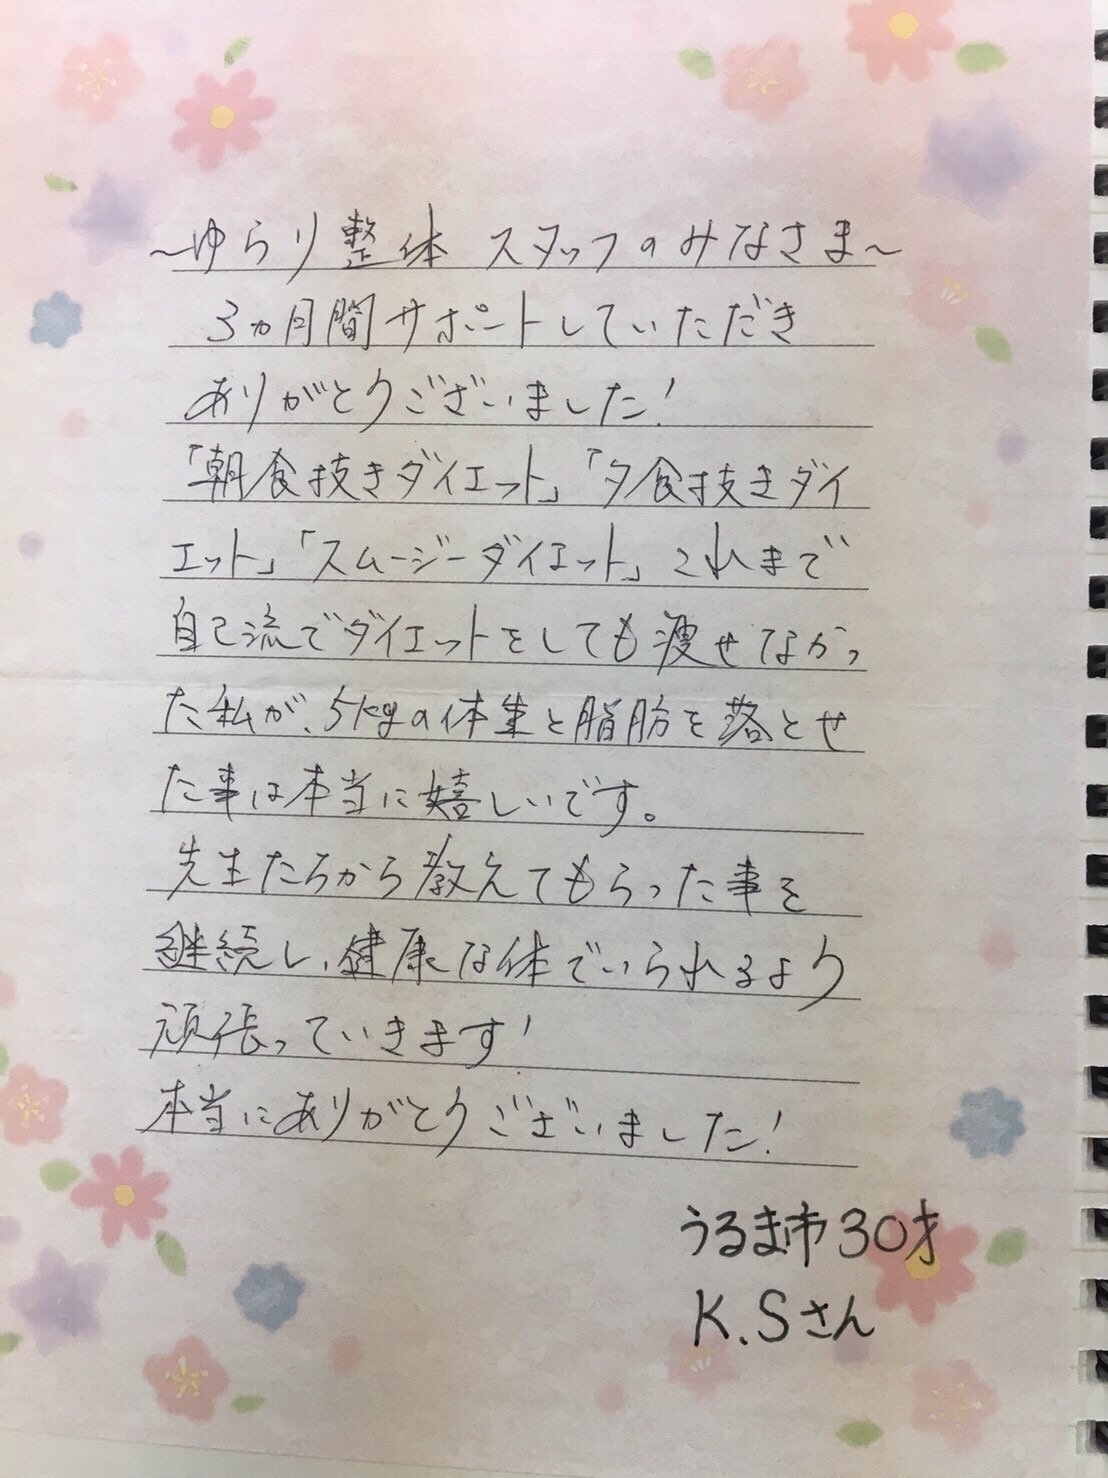 ～ゆらり整体 スタッフのみなさま～
3ヵ月間サポートしていただき
ありがとうございました！
「朝食抜きダイエット」「夕食抜きダイ
エット」「スムージーダイエット」これまで
自己流でダイエットをしても痩せなかっ
た私が、5kgの体重と脂肪を落とせ
た事は本当に嬉しいです。
先生たちから教えてもらった事を
継続し、健康な体でいられるよう
頑張っていきます！
本当にありがとうございました！
うるま市30才
K.Sさん